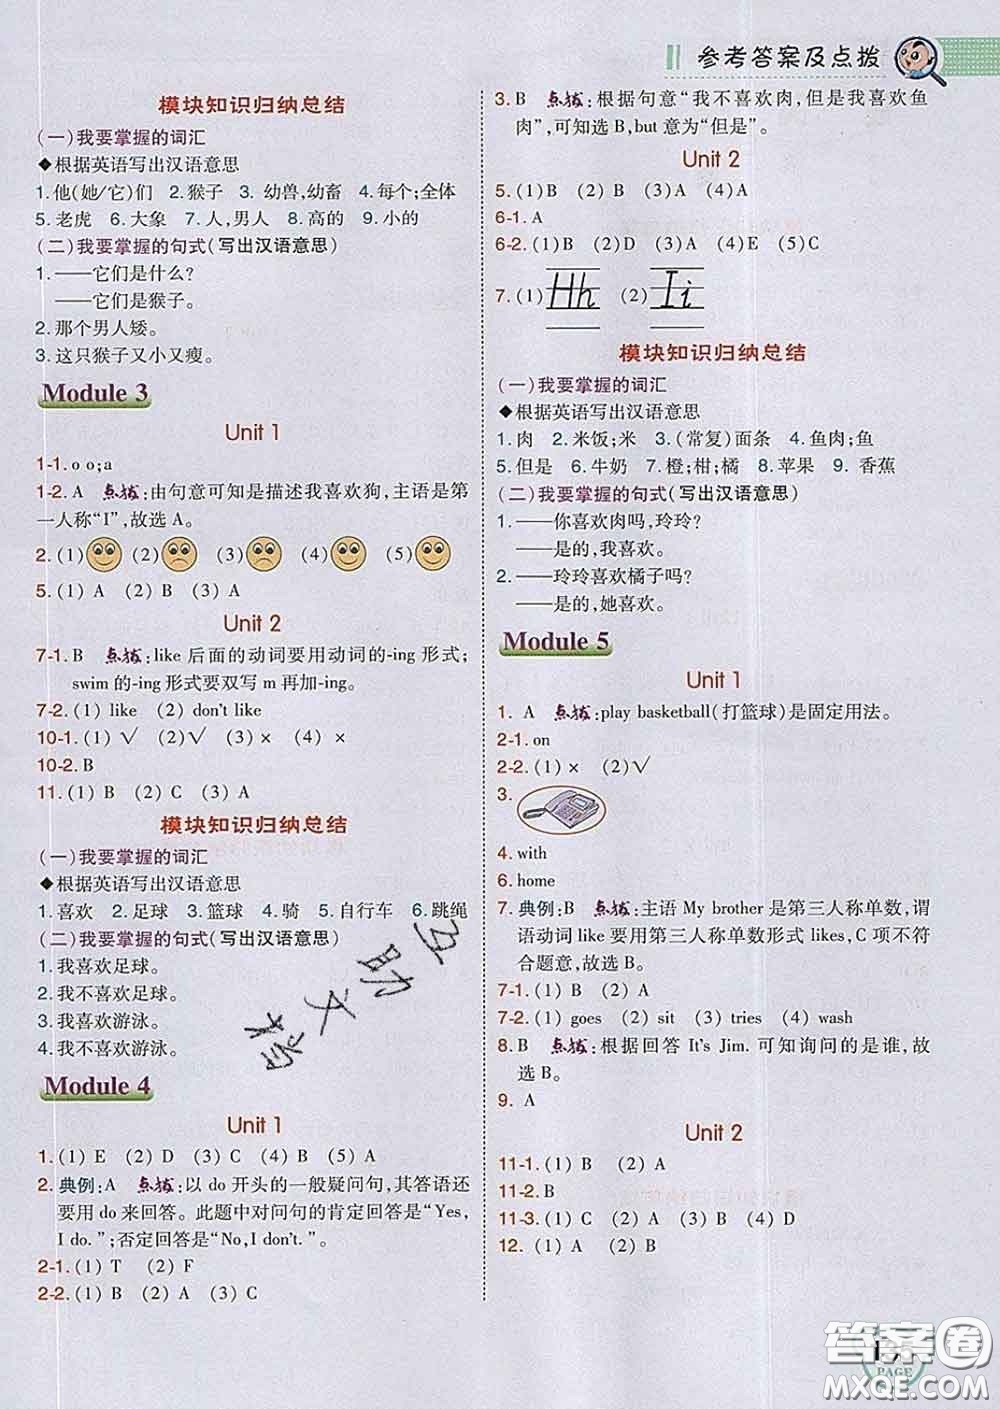 参考答案及点拨
模块知识归纳总结
(一)我要掌握的词汇
◆根据英语写出汉语意思
1.他(她/它)们 2.猴子 3. 幼兽,幼畜 4.每个;全体
5.老虎 6.大象 7.人,男人 8.高的 9.小的
(二)我要掌握的句式(写出汉语意思)
1.——它们是什么?
——它们是猴子。
2.那个男人矮。
3.这只猴子又小又瘦。
Module 3
Unit 1
1-1. o o;a
1-2. A 点拨:由句意可知是描述我喜欢狗,主语是第
一人称“I”,故选 A。
2.(1) (2) (3) (4) (5)
5.(1) A (2) B (3) A
Unit 2
7-1. B 点拨:like 后面的动词要用动词的-ing 形式;
swim 的-ing 形式要双写 m 再加-ing。
7-2.(1) like (2) don't like
10-1.(1)√ (2)√ (3)× (4) ×
10-2. B
11.(1) B (2) C (3) A
模块知识归纳总结
(一)我要掌握的词汇
◆根据英语写出汉语意思
1.喜欢 2.足球 3.篮球 4.骑 5.自行车 6.跳绳
(二)我要掌握的句式(写出汉语意思)
1.我喜欢足球。
2.我不喜欢足球。
3.我喜欢游泳。
4.我不喜欢游泳。
Module 4
Unit 1
1.(1) E (2) D (3) C (4) B (5) A
2.典例:A 点拨:以 do 开头的一般疑问句,其答语还
要用 do 来回答。此题中对问句的肯定回答是“Yes,
I do.”;否定回答是“No,I don't.”。
2-1.(1) T (2) F
2-2.(1) B (2) A (3) C
3. B 点拨:根据句意“我不喜欢肉,但是我喜欢鱼
肉”,可知选 B,but 意为“但是”。
Unit 2
5.(1)B (2) B (3)A (4)A
6-1. A
6-2.(1)B (2)D (3)A (4)E (5)C
7.(1) Hh (2) Ii
模块知识归纳总结
(一)我要掌握的词汇
◆根据英语写出汉语意思
1.肉 2.米饭;米 3.(常复)面条 4.鱼肉;鱼
5.但是 6.牛奶 7.橙;柑;橘 8.苹果 9. 香蕉
(二)我要掌握的句式(写出汉语意思)
1.——你喜欢肉吗,玲玲?
——是的,我喜欢。
2.——玲玲喜欢橘子吗?
——是的,她喜欢。
Module 5
Unit 1
1. A 点拨:play basketball(打篮球)是固定用法。
2-1. on
2-2.(1)× (2)√
3.
4. with
6. home
7.典例:B 点拨:主语 My brother 是第三人称单数,谓
语动词 like 要用第三人称单数形式 likes,C 项不符
合题意,故选 B。
7-1.(1) B (2) A
7-2.(1) goes (2) sit (3) tries (4) wash
8. B 点拨:根据回答 It's Jim. 可知询问的是谁,故
选 B。
9. A
Unit 2
11-1.(1) B (2) A
11-2. B
11-3.(1) C (2) A (3) B (4) D
12.(1) A (2) B
互助文档
PAGE
答案圈
MXQE.COM